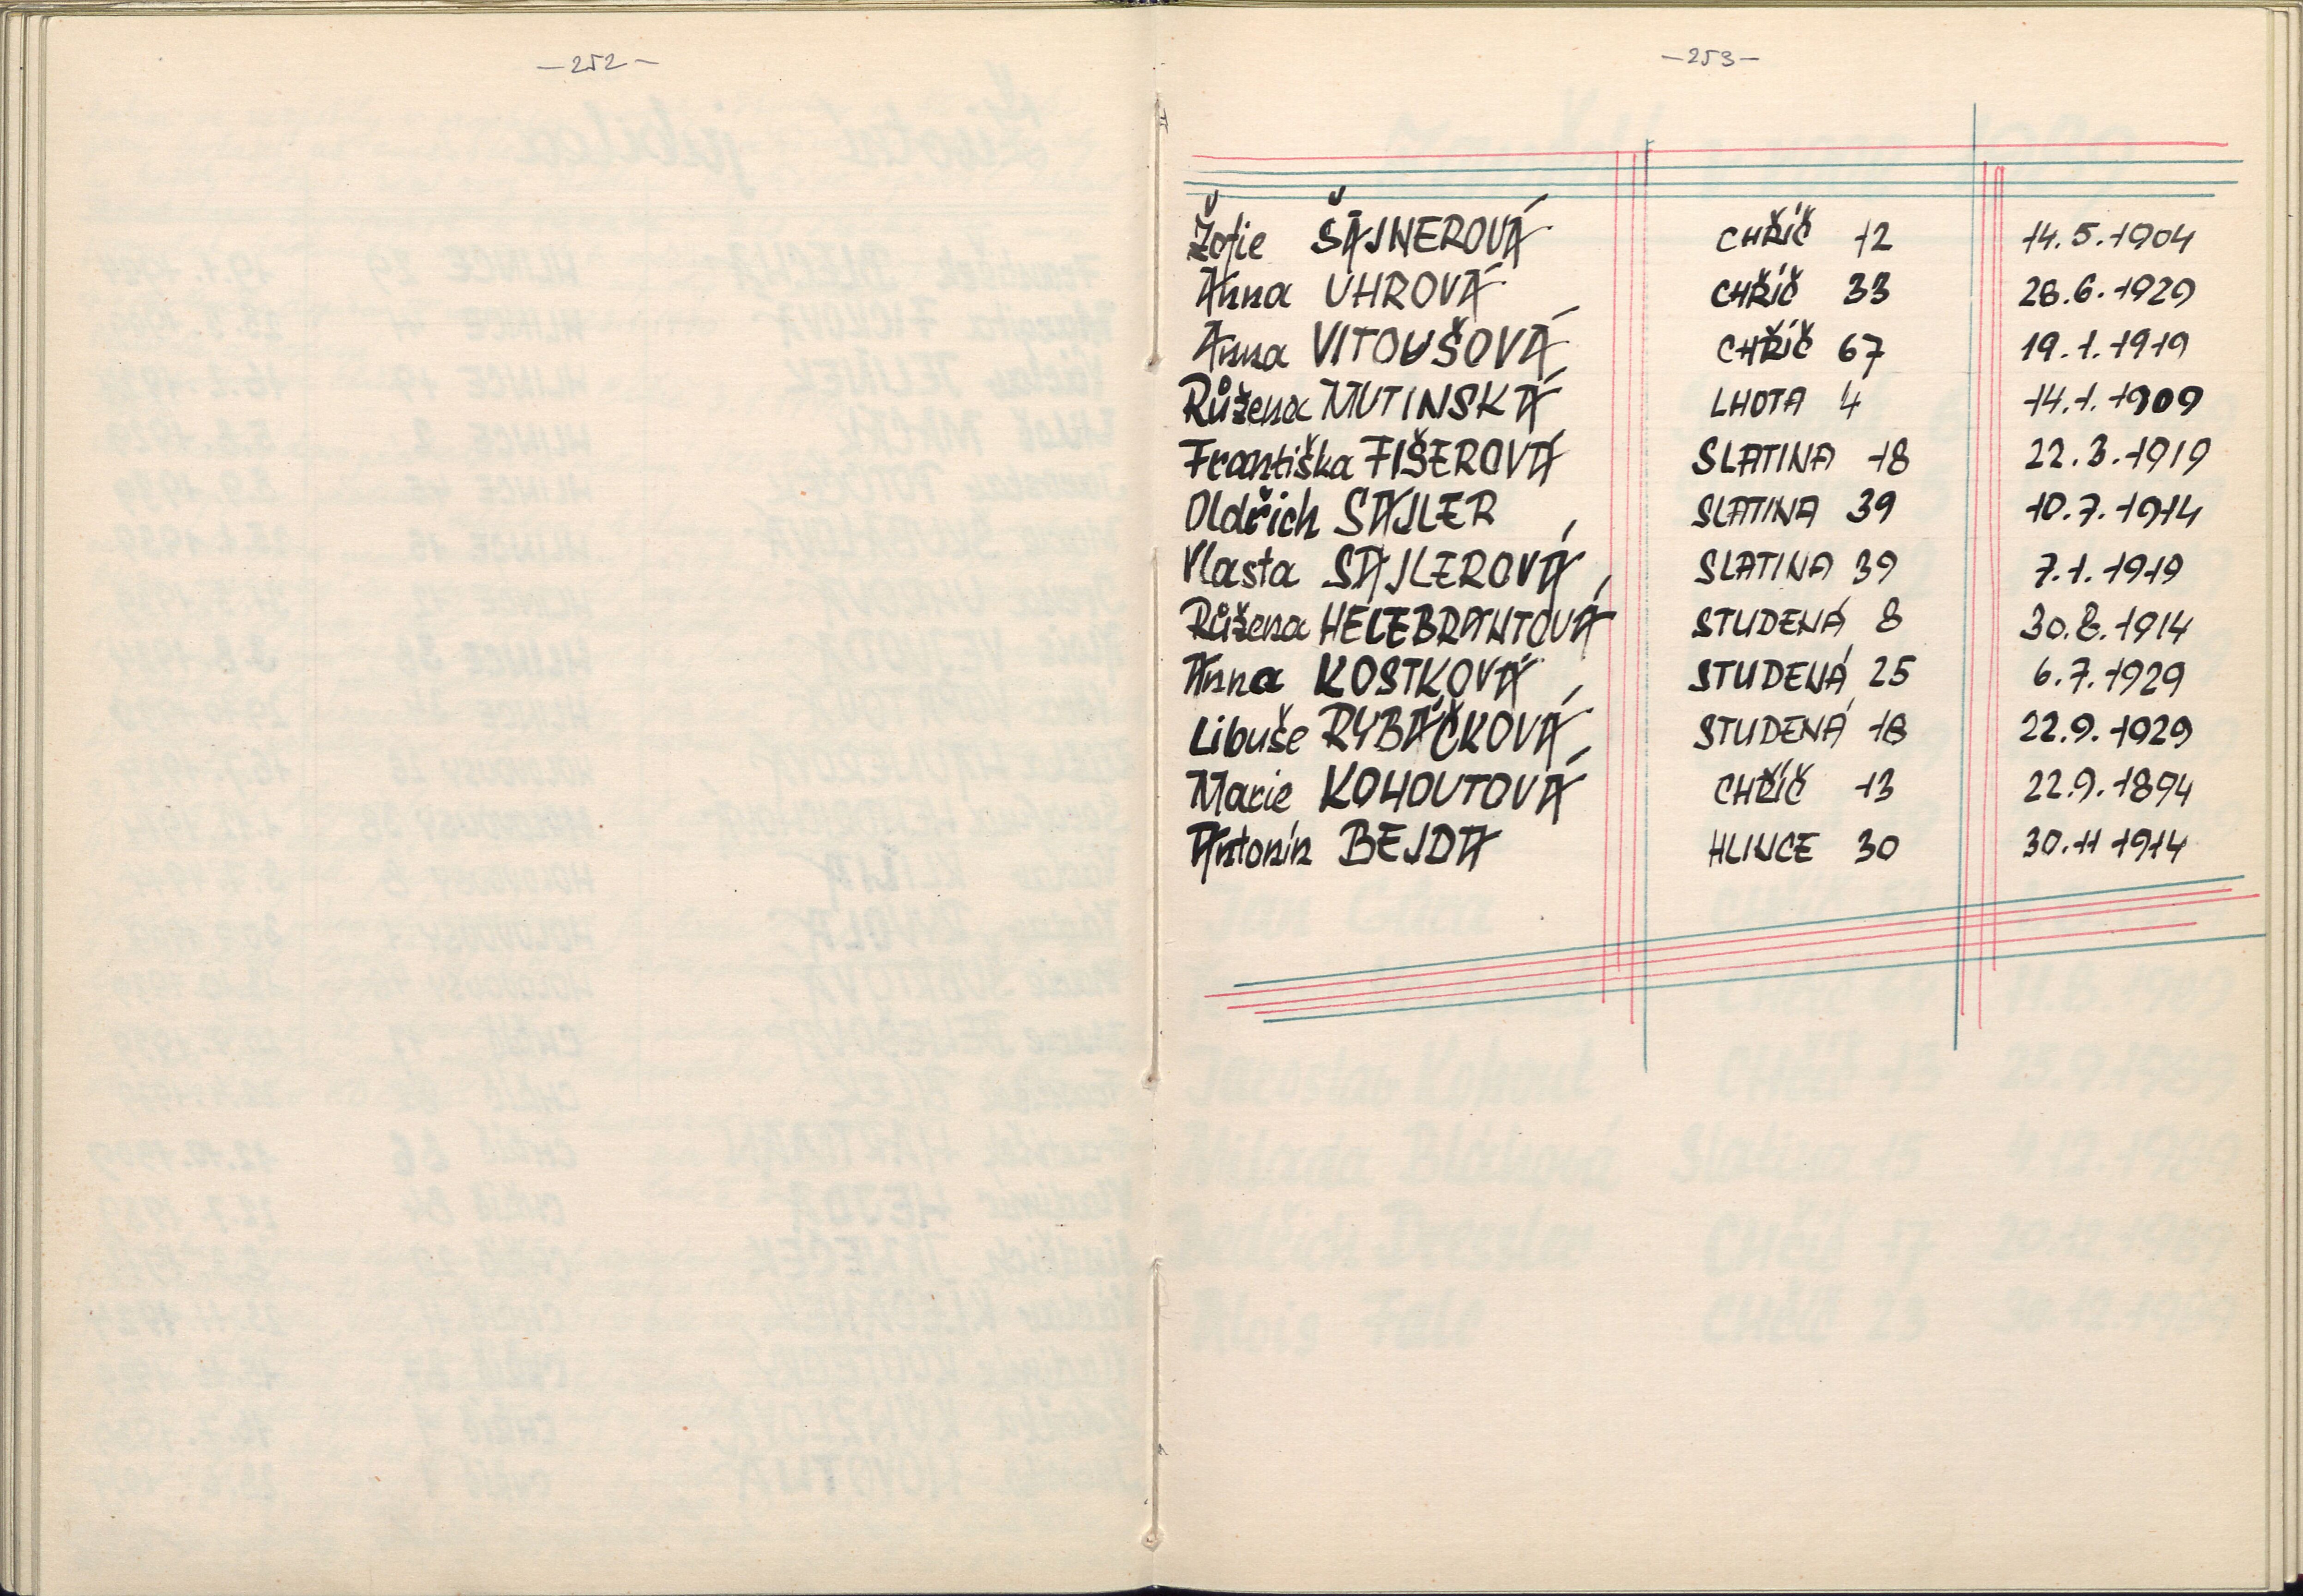 -252-
-253-
Žofie ŠAJNEROVÁ CHŘÍČ 12 14.5.1904
Anna UHROVÁ CHŘÍČ 33 28.6.1929
Anna VITOUŠOVÁ CHŘÍČ 67 19.1.1919
Růžena MUTINSKÁ LHOTA 4 14.1.1909
Františka FIŠEROVÁ SLATINA 18 22.3.1919
Oldřich SAJLER SLATINA 39 10.7.1914
Vlasta SAJLEROVÁ SLATINA 39 7.1.1919
Růžena HELEBRANTOVÁ STUDENÁ 8 30.8.1914
Anna KOSTKOVÁ STUDENÁ 25 6.7.1929
Libuše RYBÁČKOVÁ STUDENÁ 18 22.9.1929
Marie KOHOUTOVÁ CHŘÍČ 13 22.9.1894
Antonín BEJDA HLINCE 30 30.11 1914